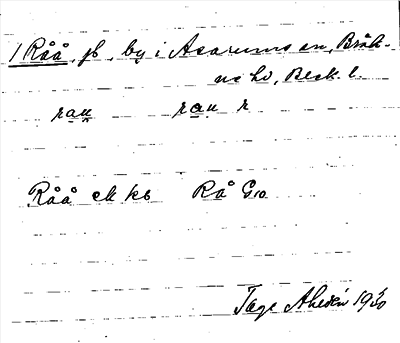 1 Råå, jb, by i Asarums sn, Bräk-
ne hd, Blek. l.
rau̯ rau̯ r
Råå ek kb Rå Go
Tage Ahlsén 1930